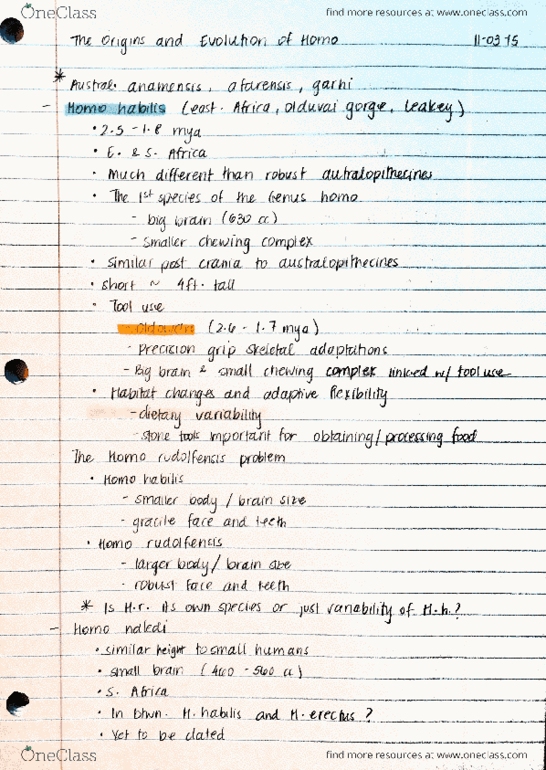 OneClass
find more resources at www.oneclass.com
The Origins and Evolution of Homo 11-03-15
* Austral. anamensis, afarensis, garhi
- Homo habilis (east. Africa, olduvai gorge, leakey)
• 2.5 - 1.8 mya
• E. & S. Africa
• Much different than robust autralopithecines
• The 1st species of the Genus homo
- big brain (630 cc)
- smaller chewing complex
• Similar post crania to australopithecines
• short ~ 4ft. tall
• Tool use
- oldowan (2.6 - 1.7 mya)
- Precision grip skeletal adaptations
- Big brain & small chewing complex linked w/ tool use
• Habitat changes and adaptive flexibility
- dietary variability
- stone tools important for obtaining/processing food
The Homo rudolfensis problem
• Homo habilis
- smaller body / brain size
- gracile face and teeth
• Homo rudolfensis
- larger body / brain size
- robust face and teeth
* Is H.r. its own species or just variability of H.h.?
- Homo naledi
• similar height to small humans
• small brain (460 - 560 cc)
• S. Africa
• In btwn. H. habilis and H. erectus?
• Yet to be dated
OneClass
find more resources at www.oneclass.com